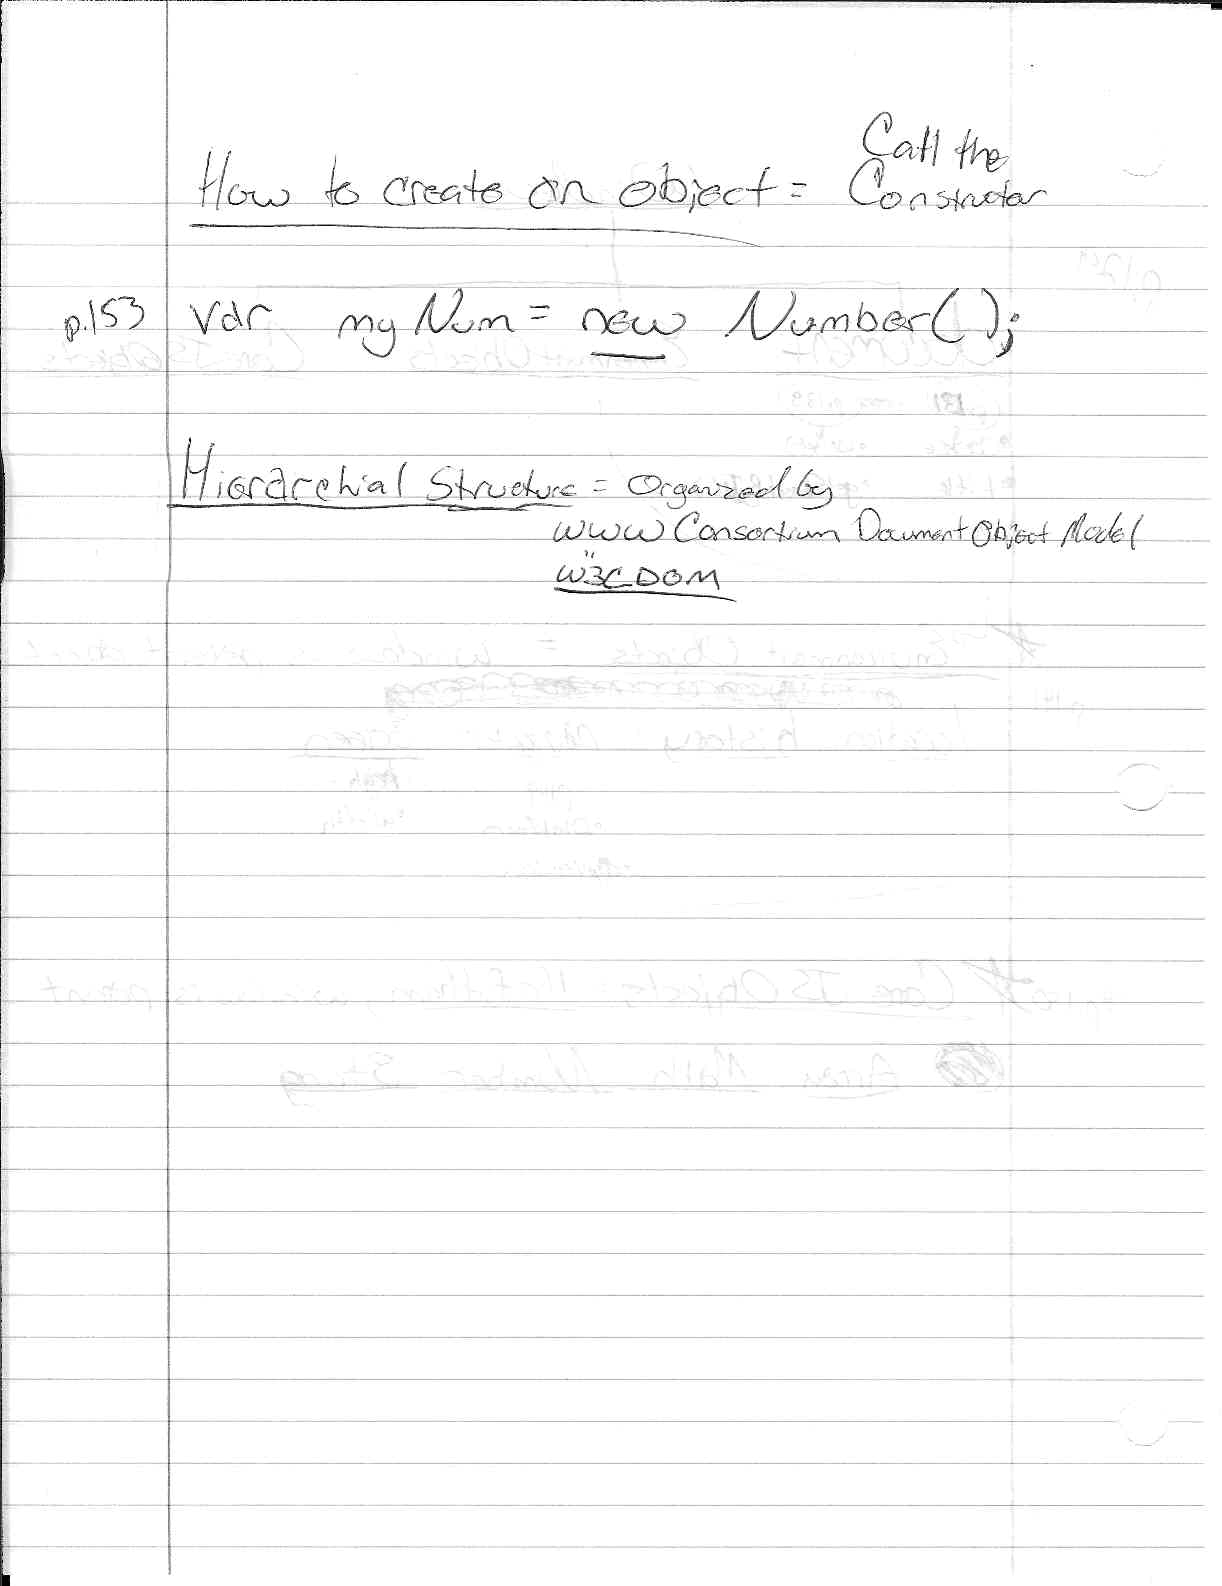 Call the
How to create an object = Constructor
p.153 var myNum = new Number();
Hierarchial Structure = Organized by
WWW Consortium Document Object Model
"
W3C DOM